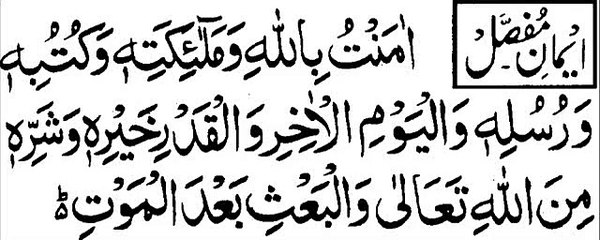 ایمانِ مُفَصَّلْ
اٰمَنْتُ بِاللهِ وَمَلٰٓئِكَتِهٖ وَكُتُبِهٖ
وَرُسُلِهٖ وَالْيَوْمِ الْاٰخِرِ وَالْقَدْرِ خَيْرِهٖ وَشَرِّهٖ
مِنَ اللهِ تَعَالٰى وَالْبَعْثِ بَعْدَ الْمَوْتِ ؕ